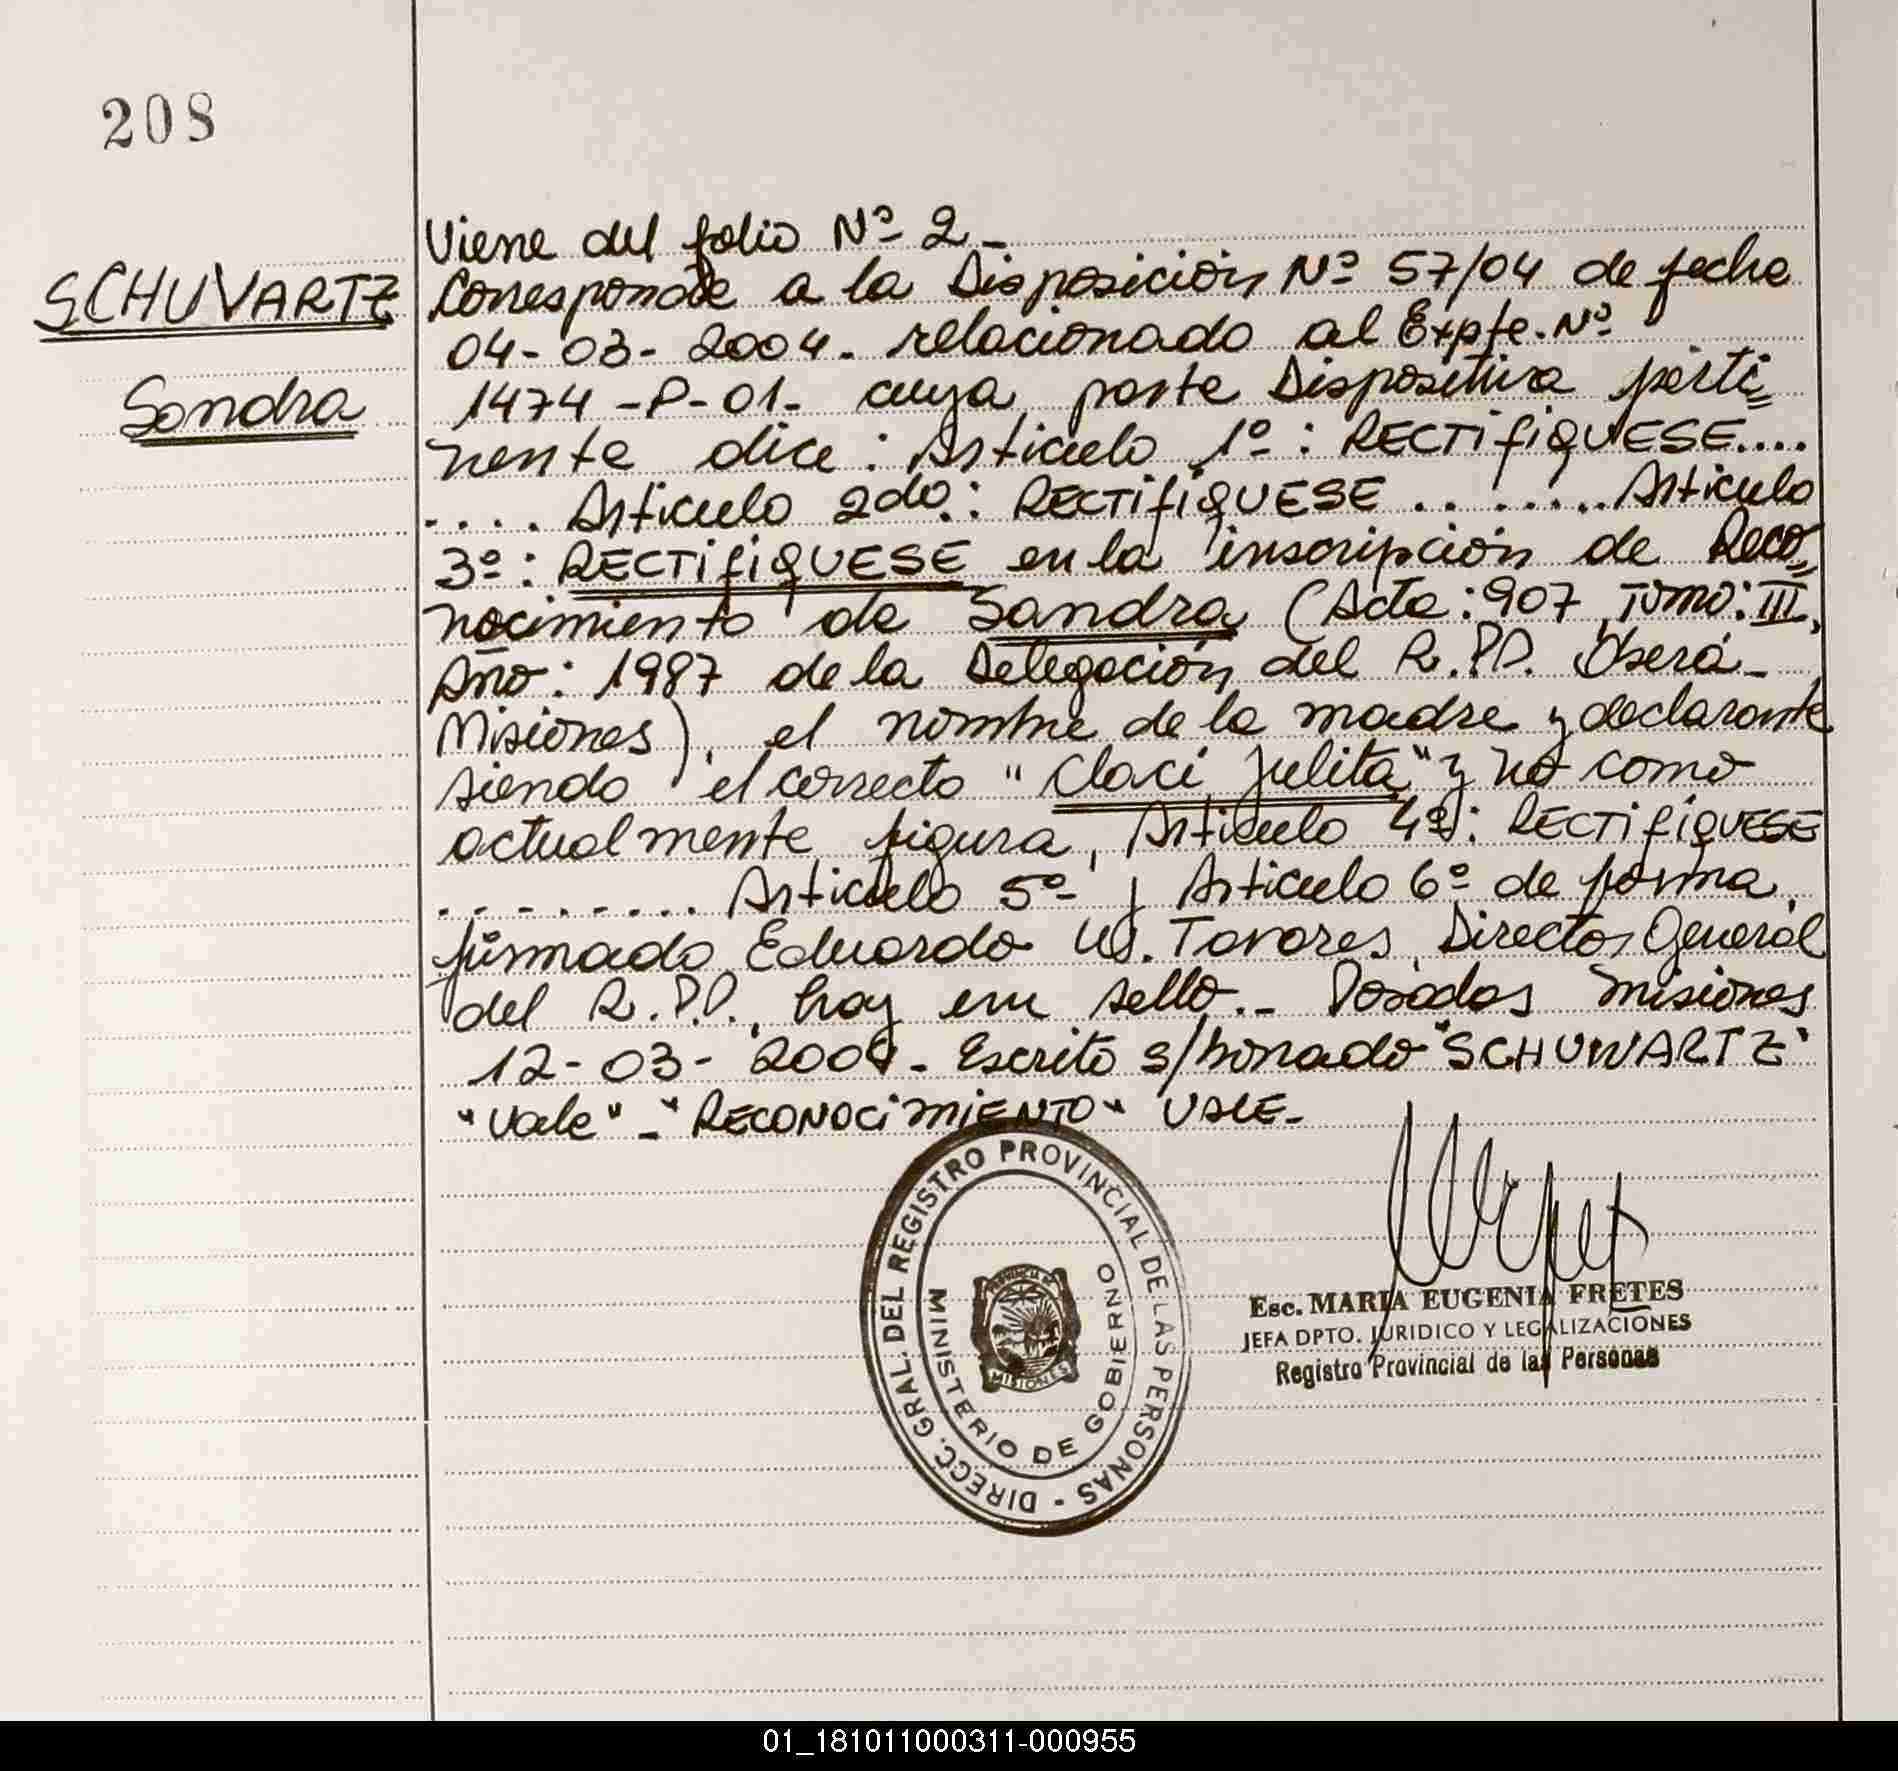 208
SCHUVARTZ
Sandra
Viene del folio Nº 2_
Corresponde a la Disposición Nº 57/04 de fecha
04-03-2004. relacionado al Expte. Nº
1474-P-01. cuya parte Dispositiva perti=
nente dice: Articulo 1º: RECTIFIQUESE....
.... Articulo 2do.: RECTIFIQUESE ........ Articulo
3º: RECTIFIQUESE en la inscripción de Reco=
nocimiento de Sandra (Acta: 907, Tomo: III,
Año: 1987 de la Delegación del R.P.P. Oberá_
Misiones), el nombre de la madre y declarante
siendo el correcto "Claci Julita" y no como
actualmente figura, Articulo 4º: RECTIFIQUESE
......... Articulo 5º y Articulo 6º de forma,
firmado Eduardo W. Tavares, Director General
del R.P.P., hay un sello._ Posadas Misiones
12-03-2004_ Escrito s/borrado "SCHUWARTZ"
"Vale"_ "RECONOCIMIENTO" VALE_
DIRECC. GRAL. DEL REGISTRO PROVINCIAL DE LAS PERSONAS -
MINISTERIO DE GOBIERNO
PROVINCIA DE
MISIONES
Esc. MARIA EUGENIA FRETES
JEFA DPTO. JURIDICO Y LEGALIZACIONES
Registro Provincial de las Personas
01_181011000311-000955